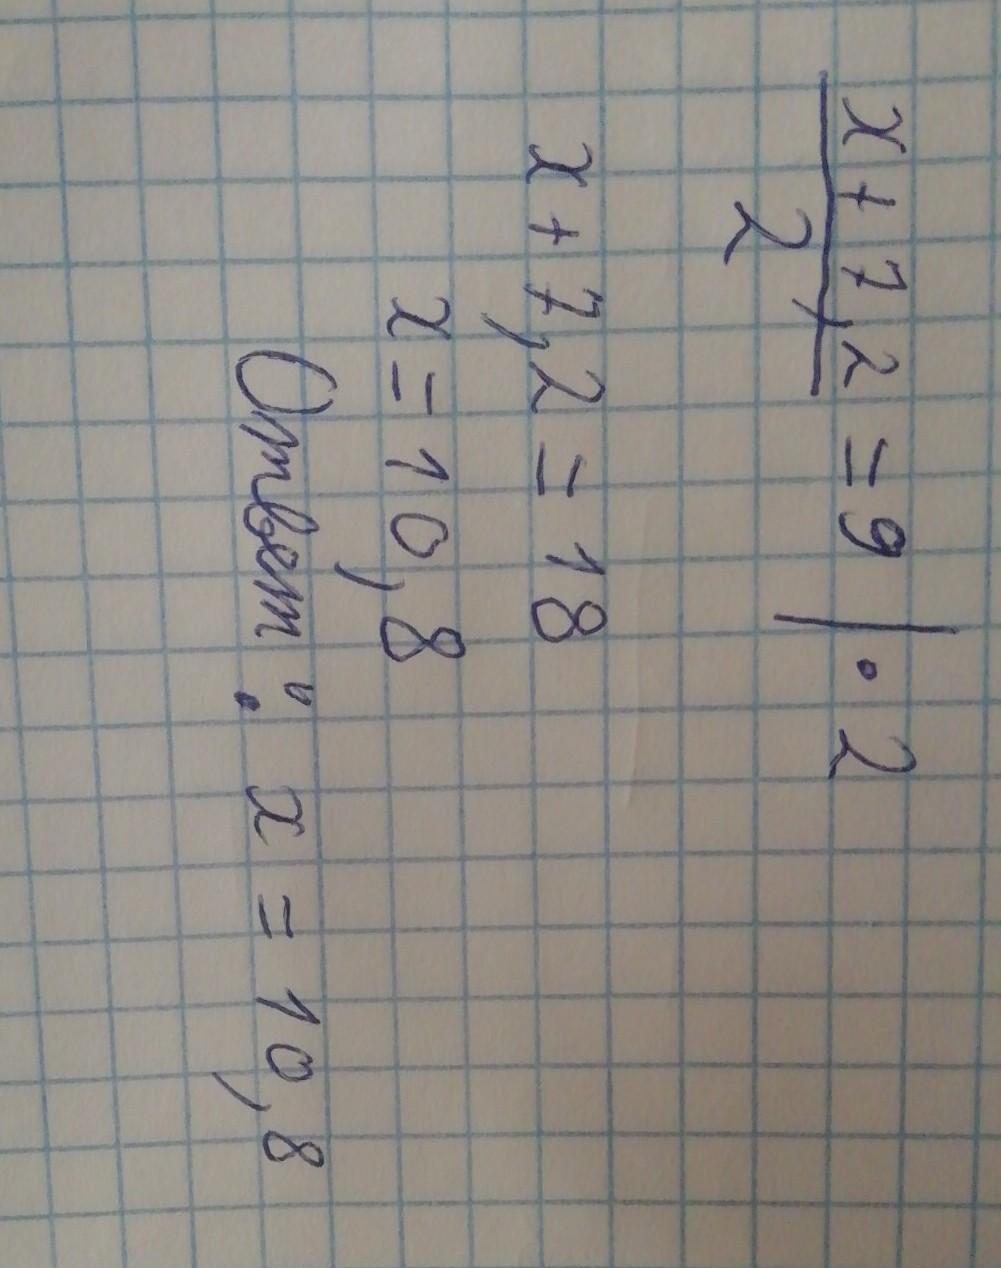 x + 7,2 = 9 | · 2
2
x + 7,2 = 18
x = 10,8
Ответ: x = 10,8